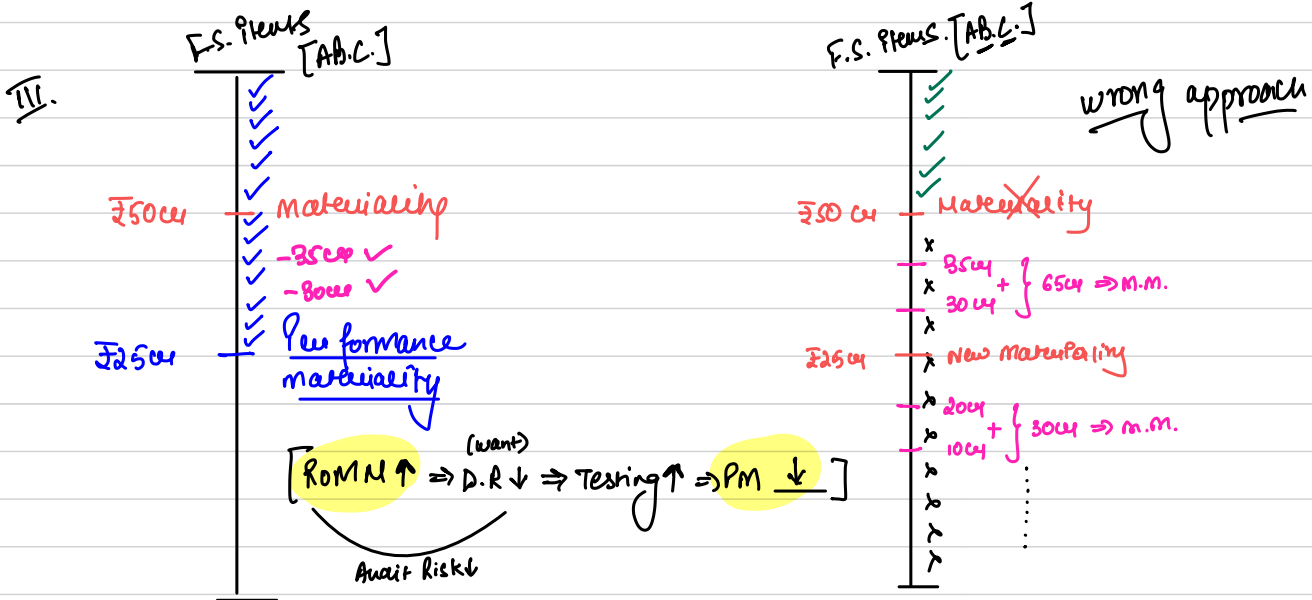 III.
F.S. items
[AB.C.]
₹50 cr
Materiality
-35cr ✓
-30cr ✓
₹25 cr
Performance
materiality
[RoMM ↑ ⇒ D.R ↓ ⇒ Testing ↑ ⇒ PM ↓]
(want)
Audit Risk ↓
F.S. items. [AB.C.]
wrong approach
₹50 cr
Materiality
35cr
+ } 65cr ⇒ M.M.
30cr
₹25cr
New Materiality
20cr
+ } 30cr ⇒ M.M.
10cr